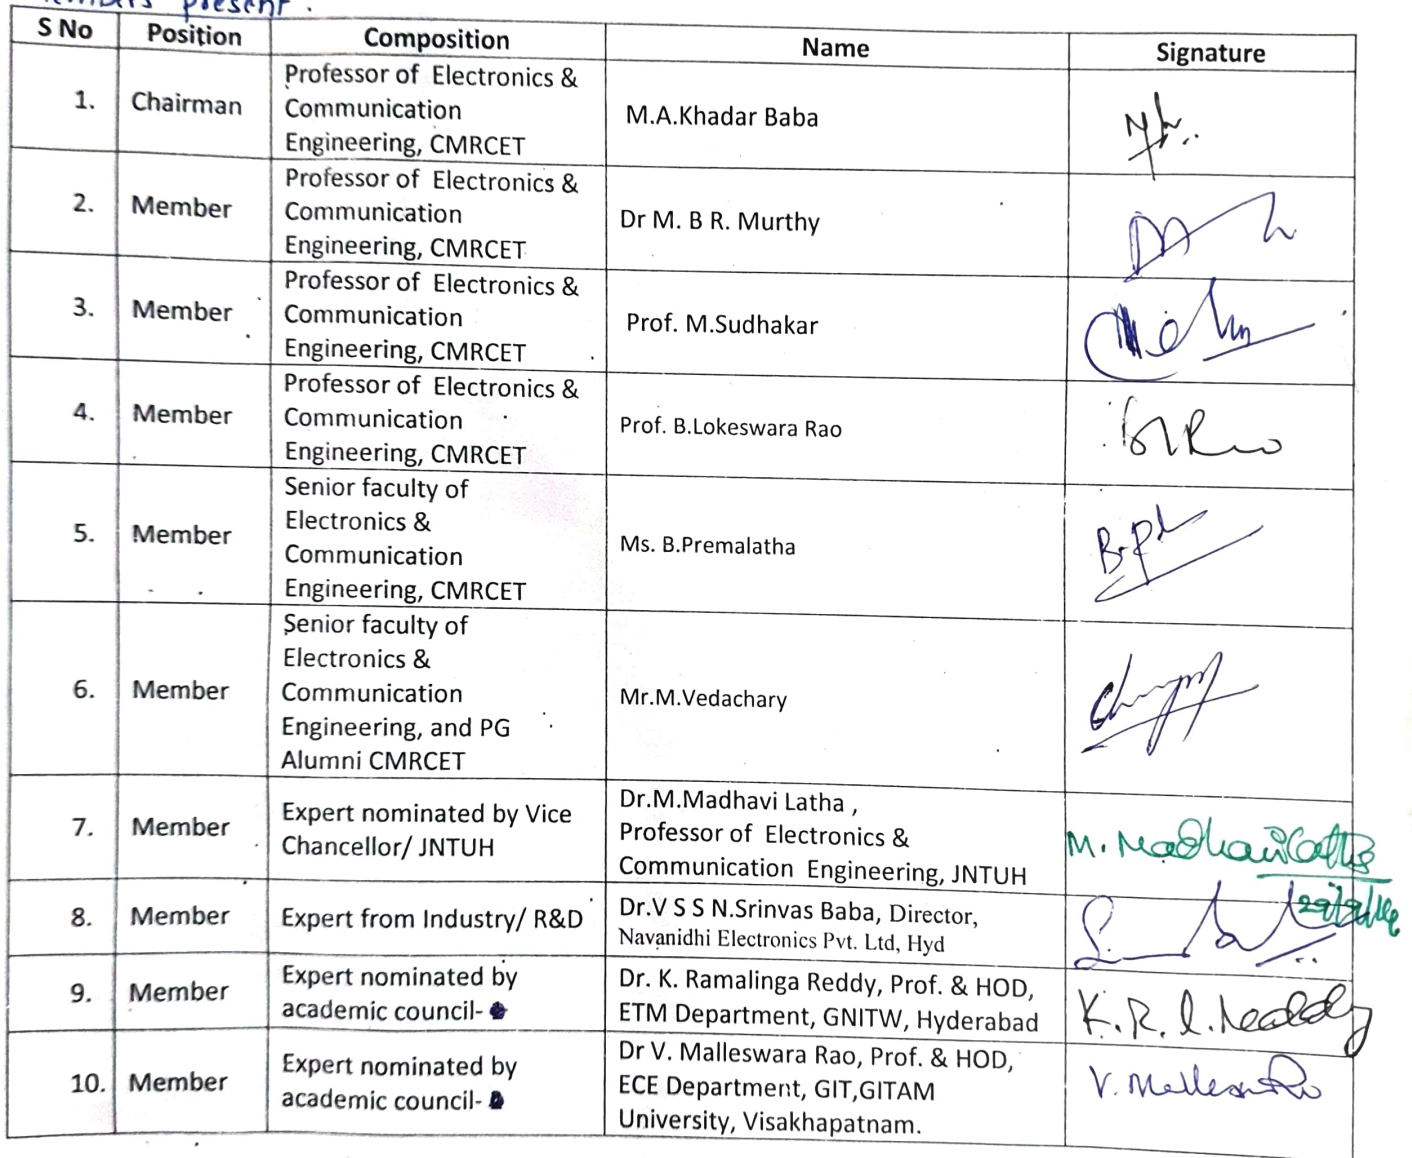 present.
S No Position Composition Name Signature
1. Chairman Professor of Electronics &
Communication
Engineering, CMRCET
M.A.Khadar Baba
2. Member Professor of Electronics &
Communication
Engineering, CMRCET
Dr M. B R. Murthy
3. Member Professor of Electronics &
Communication
Engineering, CMRCET
Prof. M.Sudhakar
4. Member Professor of Electronics &
Communication
Engineering, CMRCET
Prof. B.Lokeswara Rao
5. Member Senior faculty of
Electronics &
Communication
Engineering, CMRCET
Ms. B.Premalatha
6. Member Senior faculty of
Electronics &
Communication
Engineering, and PG
Alumni CMRCET
Mr.M.Vedachary
7. Member Expert nominated by Vice
Chancellor/ JNTUH
Dr.M.Madhavi Latha ,
Professor of Electronics &
Communication Engineering, JNTUH
M. Madhavi Latha
8. Member Expert from Industry/ R&D
Dr.V S S N.Srinvas Baba, Director,
Navanidhi Electronics Pvt. Ltd, Hyd
9. Member Expert nominated by
academic council-
Dr. K. Ramalinga Reddy, Prof. & HOD,
ETM Department, GNITW, Hyderabad
K. R. L. Reddy
10. Member Expert nominated by
academic council-
Dr V. Malleswara Rao, Prof. & HOD,
ECE Department, GIT,GITAM
University, Visakhapatnam.